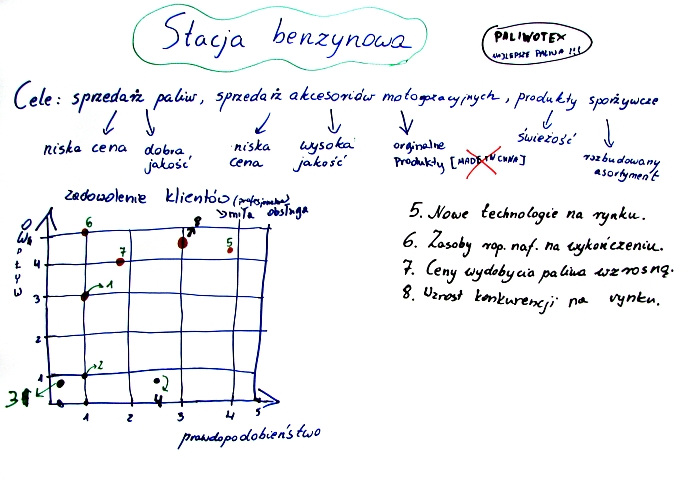 Stacja benzynowa
PALIWOTEX
NAJLEPSZE PALIWA !!!
Cele: sprzedarz paliw, sprzedarz akcesoriów motoryzacyjnych, produkty spożywcze
niska cena
dobra jakość
niska cena
wysoka jakość
orginalne produkty [MADE IN CHINA]
świeżość
rozbudowany asortyment
zadowolenie klientów (profesjonalna)
miła obsługa
5. Nowe technologie na rynku.
6. Zasoby rop. naf. na wykończeniu.
7. Ceny wydobycia paliwa wzrosną.
8. Wzrost konkurencji na rynku.
WPŁYW
5
4
3
2
1
6
8
7
5
1
2
3
4
0
1
2
3
4
5
prawdopodobieństwo